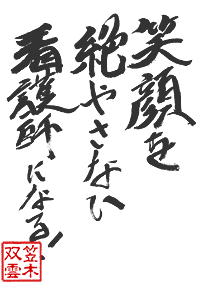 笑顔を
絶やさない
看護師になる!
笠木
双雲